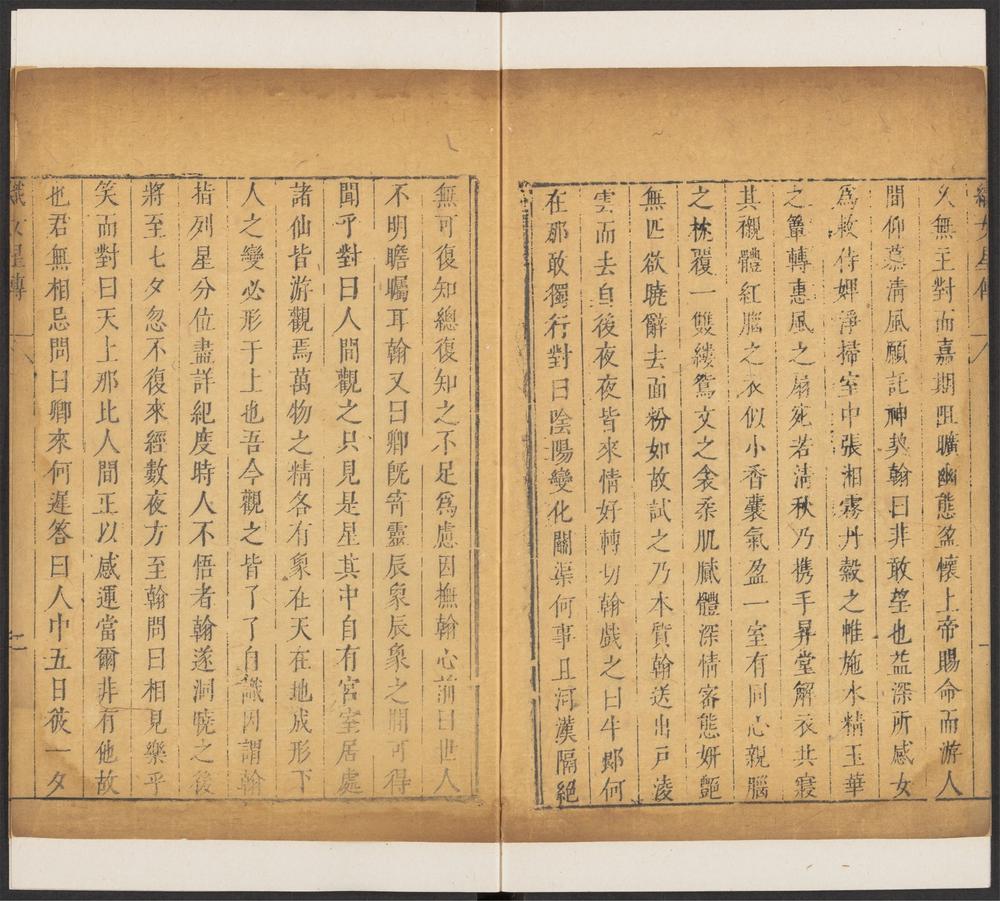 織女星傳
久無主對而嘉期阻曠幽態盈懷上帝賜命而游人
間仰慕清風願託神契翰曰非敢望也益深所感女
為敕侍婢淨掃室中張湘霧丹縠之帷施水精玉華
之簟轉惠風之扇宛若清秋乃携手昇堂解衣共寢
其襯體紅腦之衣似小香囊氣盈一室有同心親腦
之枕覆一雙縷鴛文之衾柔肌膩體深情密態妍艷
無匹欲曉辭去面粉如故試之乃本質翰送出戶凌
雲而去自後夜夜皆來情好轉切翰戲之曰牛郎何
在那敢獨行對曰陰陽變化關渠何事且河漢隔絕
無可復知總復知之不足為慮因撫翰心前曰世人
不明瞻矚耳翰又曰卿既寄靈辰象辰象之間可得
聞乎對曰人間觀之只見是星其中自有宮室居處
諸仙皆游觀焉萬物之精各有象在天在地成形下
人之變必形于上也吾今觀之皆了了自識因謂翰
指列星分位盡詳紀度時人不悟者翰遂洞曉之後
將至七夕忽不復來經數夜方至翰問曰相見樂乎
笑而對曰天上那比人間正以感運當爾非有他故
也君無相忌問曰卿來何遲答曰人中五日彼一夕
織女星傳